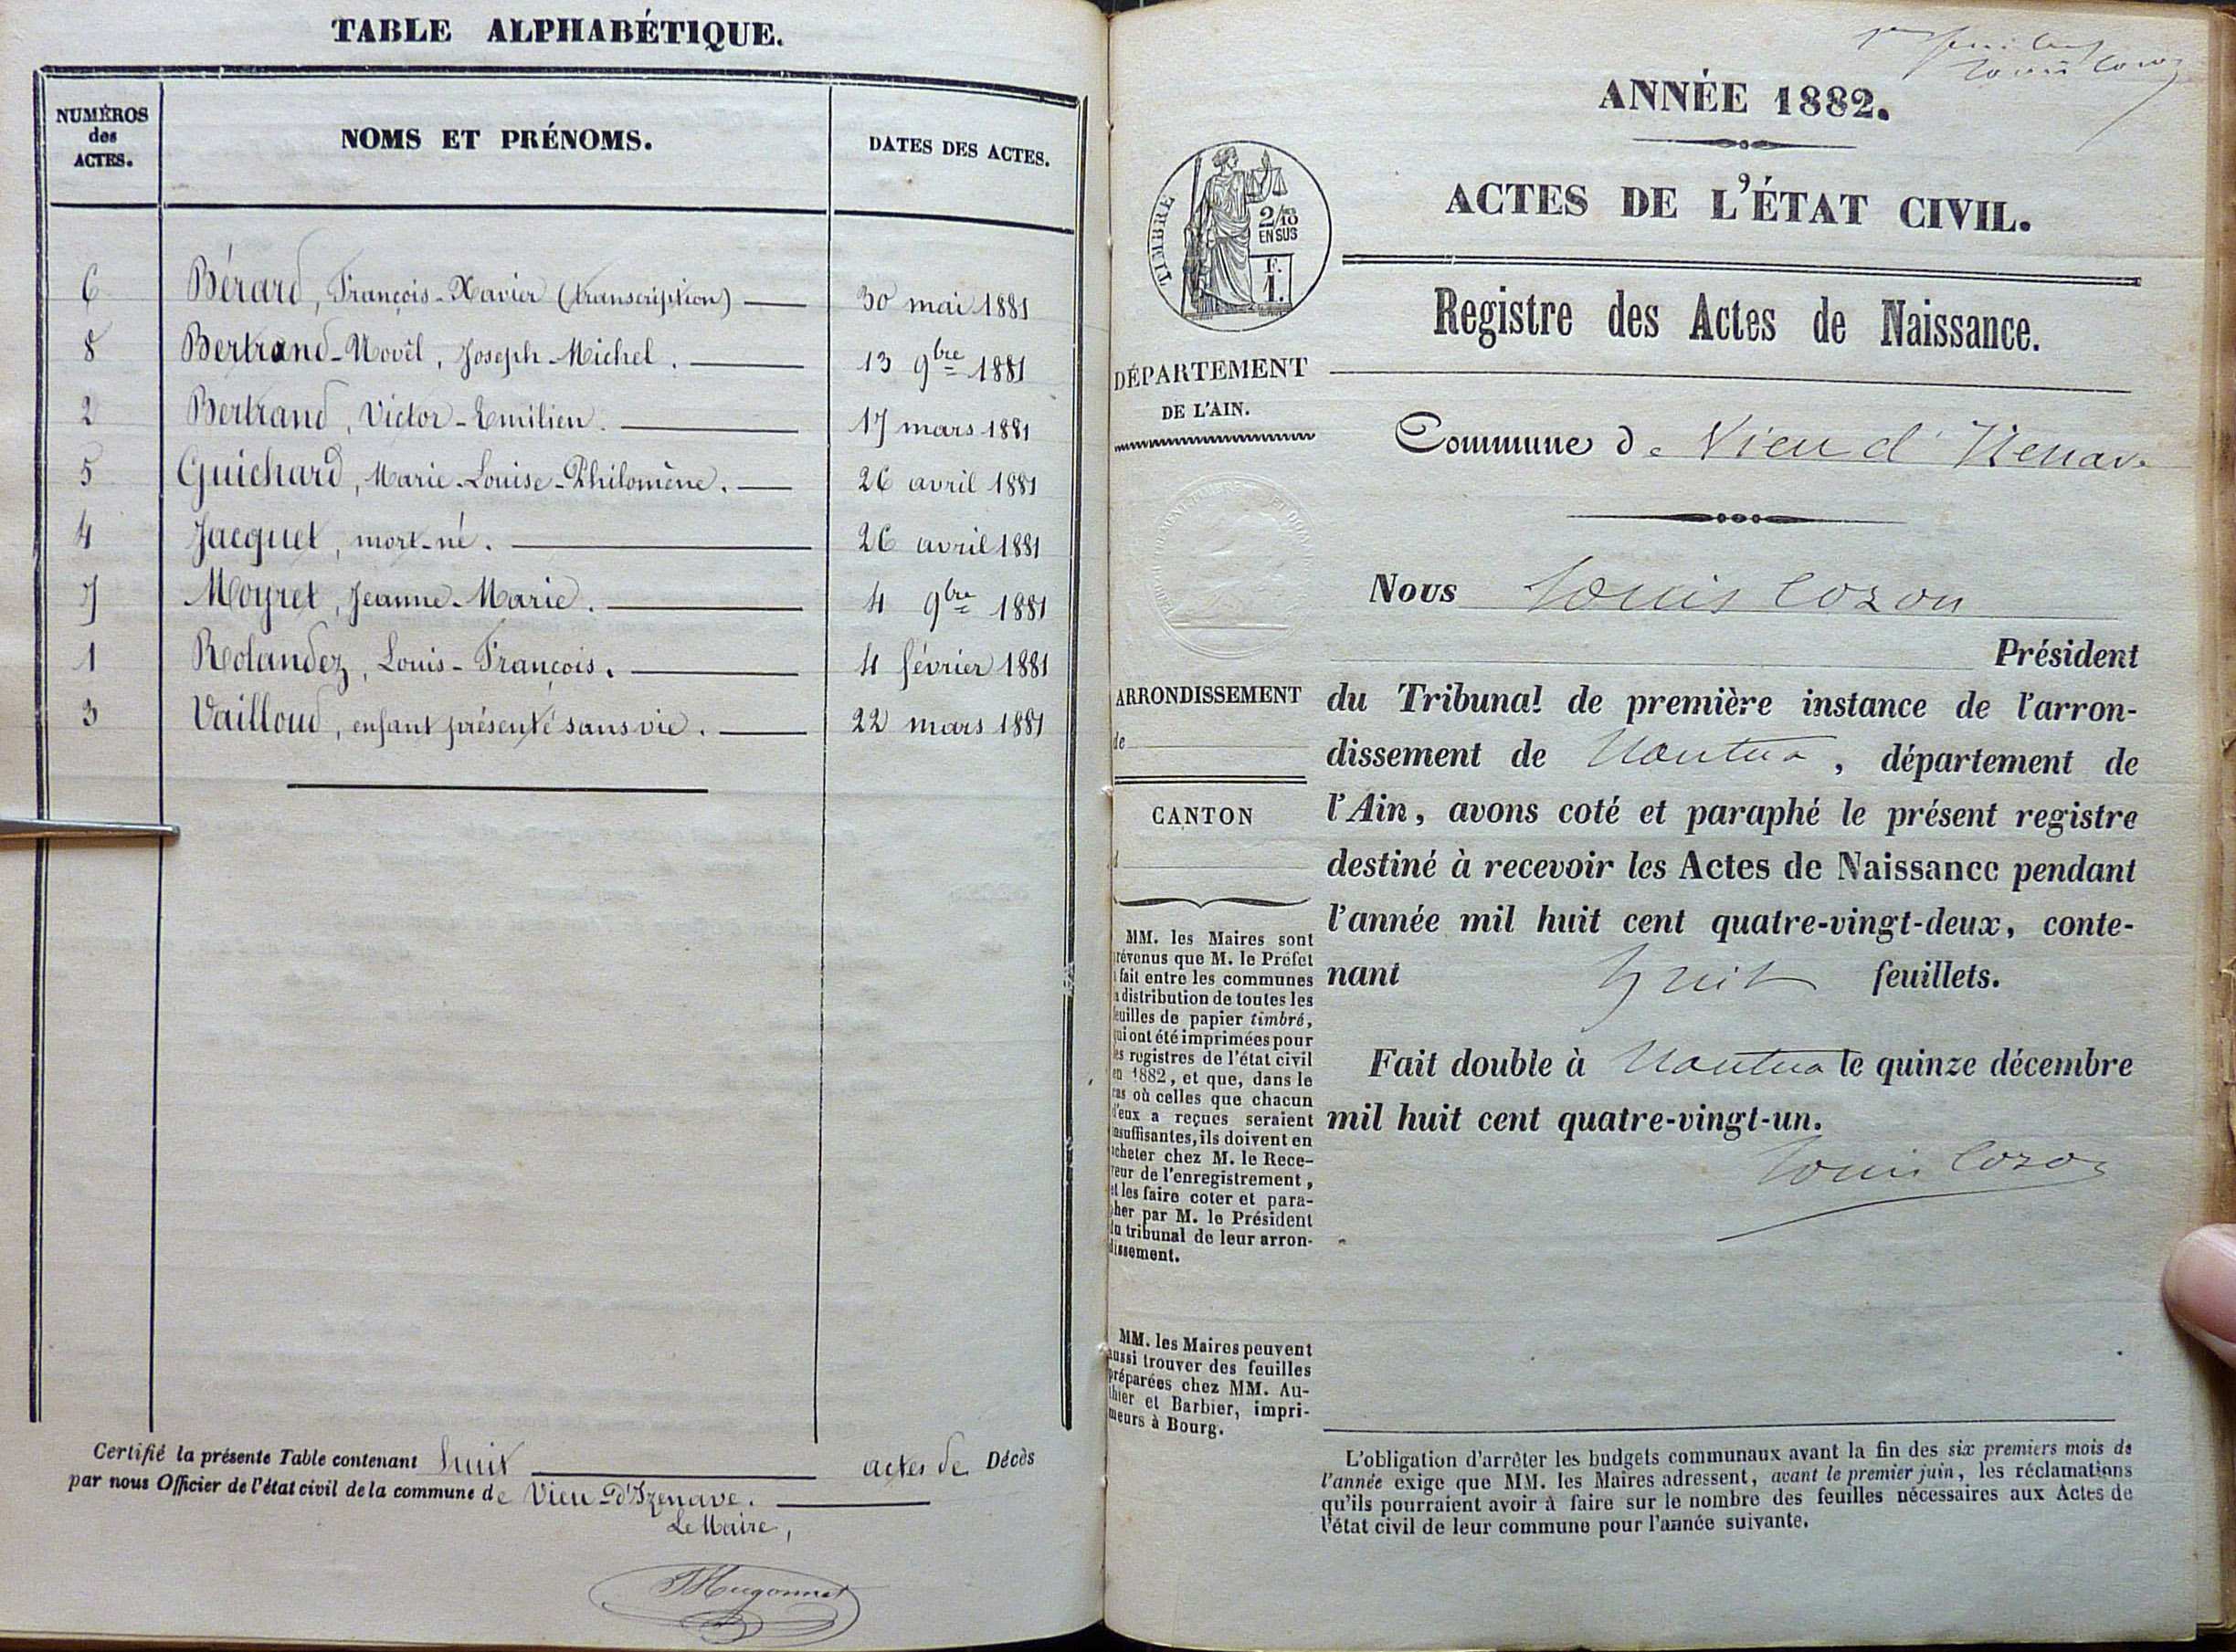 TABLE ALPHABÉTIQUE.
NUMÉROS
des
ACTES.
NOMS ET PRÉNOMS.
DATES DES ACTES.
6 Bérard, François-Xavier (transcription) 30 mai 1881
8 Bertrand-Novël, Joseph-Michel. 13 9bre 1881
2 Bertrand, Victor-Emilien. 17 mars 1881
5 Guichard, Marie-Louise-Philomène. 26 avril 1881
4 Jacquet, mort-né. 26 avril 1881
7 Moyret, Jeanne-Marie. 4 9bre 1881
1 Rolandez, Louis-François. 4 février 1881
3 Vailloud, enfant présenté sans vie. 22 mars 1881
Certifié la présente Table contenant huit actes de Décès
par nous Officier de l'état civil de la commune de Vieu-d'Izenave.
Le Maire,
Hugonnet
Louis Cozon
ANNÉE 1882.
ACTES DE L'ÉTAT CIVIL.
TIMBRE
2/10
EN SUS
F.
1.
Registre des Actes de Naissance.
DÉPARTEMENT
DE L'AIN.
Commune de Vieu d'Izenave
Nous Louis Cozon
Président
ARRONDISSEMENT
de
CANTON
d
du Tribunal de première instance de l'arron-
dissement de Nantua, département de
l'Ain, avons coté et paraphé le présent registre
destiné à recevoir les Actes de Naissance pendant
l'année mil huit cent quatre-vingt-deux, conte-
nant huit feuillets.
Fait double à Nantua le quinze décembre
mil huit cent quatre-vingt-un.
Louis Cozon
MM. les Maires sont
révenus que M. le Préfet
fait entre les communes
a distribution de toutes les
euilles de papier timbré,
ui ont été imprimées pour
es registres de l'état civil
en 1882, et que, dans le
cas où celles que chacun
d'eux a reçues seraient
nsuffisantes, ils doivent en
cheter chez M. le Rece-
veur de l'enregistrement,
et les faire coter et para-
pher par M. le Président
du tribunal de leur arron-
dissement.
MM. les Maires peuvent
aussi trouver des feuilles
préparées chez MM. Au-
thier et Barbier, impri-
meurs à Bourg.
L'obligation d'arrêter les budgets communaux avant la fin des six premiers mois de
l'année exige que MM. les Maires adressent, avant le premier juin, les réclamations
qu'ils pourraient avoir à faire sur le nombre des feuilles nécessaires aux Actes de
l'état civil de leur commune pour l'année suivante.